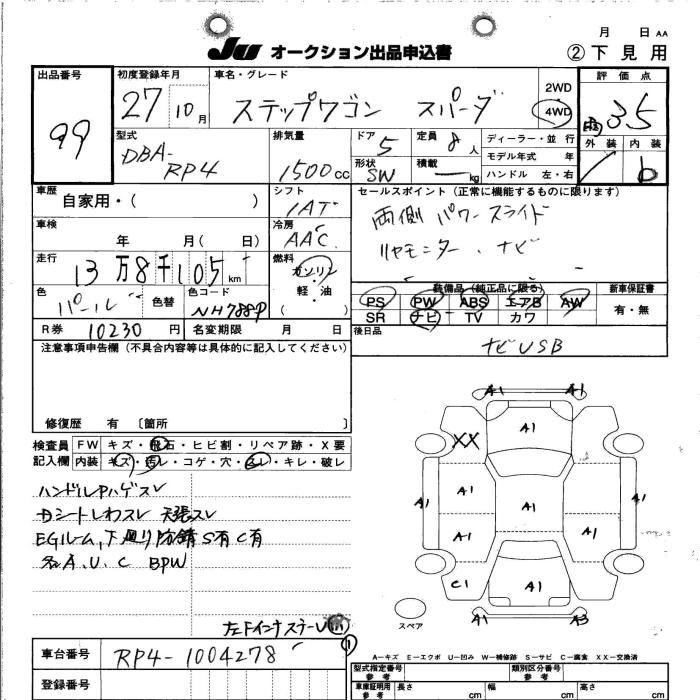 月 日 AA
JU オークション出品申込書 ②下見用
出品番号 初度登録年月 車名・グレード 評価点
99 27 10月 ステップワゴン スパーダ 2WD 4WD 3.5
外装 内装
b
型式 排気量 ドア 定員 ディーラー・並行
DBA-RP4 1500cc 5 8人 モデル年式 年
形状 SW 積載 kg ハンドル 左・右
車歴 シフト セールスポイント(正常に機能するものに限ります)
自家用・( ) IAT 両側パワースライド
車検 冷房 リヤモニター、ナビ
年 月( 日) AAC
走行 燃料
13万8千105km ガソリン・軽・油
装備品(純正品に限る) 新車保証書
色 色替 色コード ( ) PS PW ABS エアB AW 有・無
パール NH788P SR ナビ TV カワ
R券 10230円 名変期限 月 日 後日品
注意事項申告欄(不具合内容等は具体的に記入してください) ナビUSB
修復歴 有 〔箇所 〕
検査員記入欄 FW キズ・飛石・ヒビ割・リペア跡・X要
内装 キズ・汚レ・コゲ・穴・スレ・キレ・破レ
ハンドルPハゲスレ
Dシートしわスレ 天張スレ
EGルーム,下廻り防錆S有C有
名A.U.C BPW
左Fインナステー
A1 A1
A1
XX
A1 A1 A1 A1
A1 A1
C1 A1
A1 A3
スペア
車台番号 RP4-1004278
A-キズ E-エクボ U-凹み W-補修跡 S-サビ C-腐食 XX-交換済
登録番号
型式指定番号 参考 類別区分番号 参考
車庫証明用 参考 長さ cm 幅 cm 高さ cm